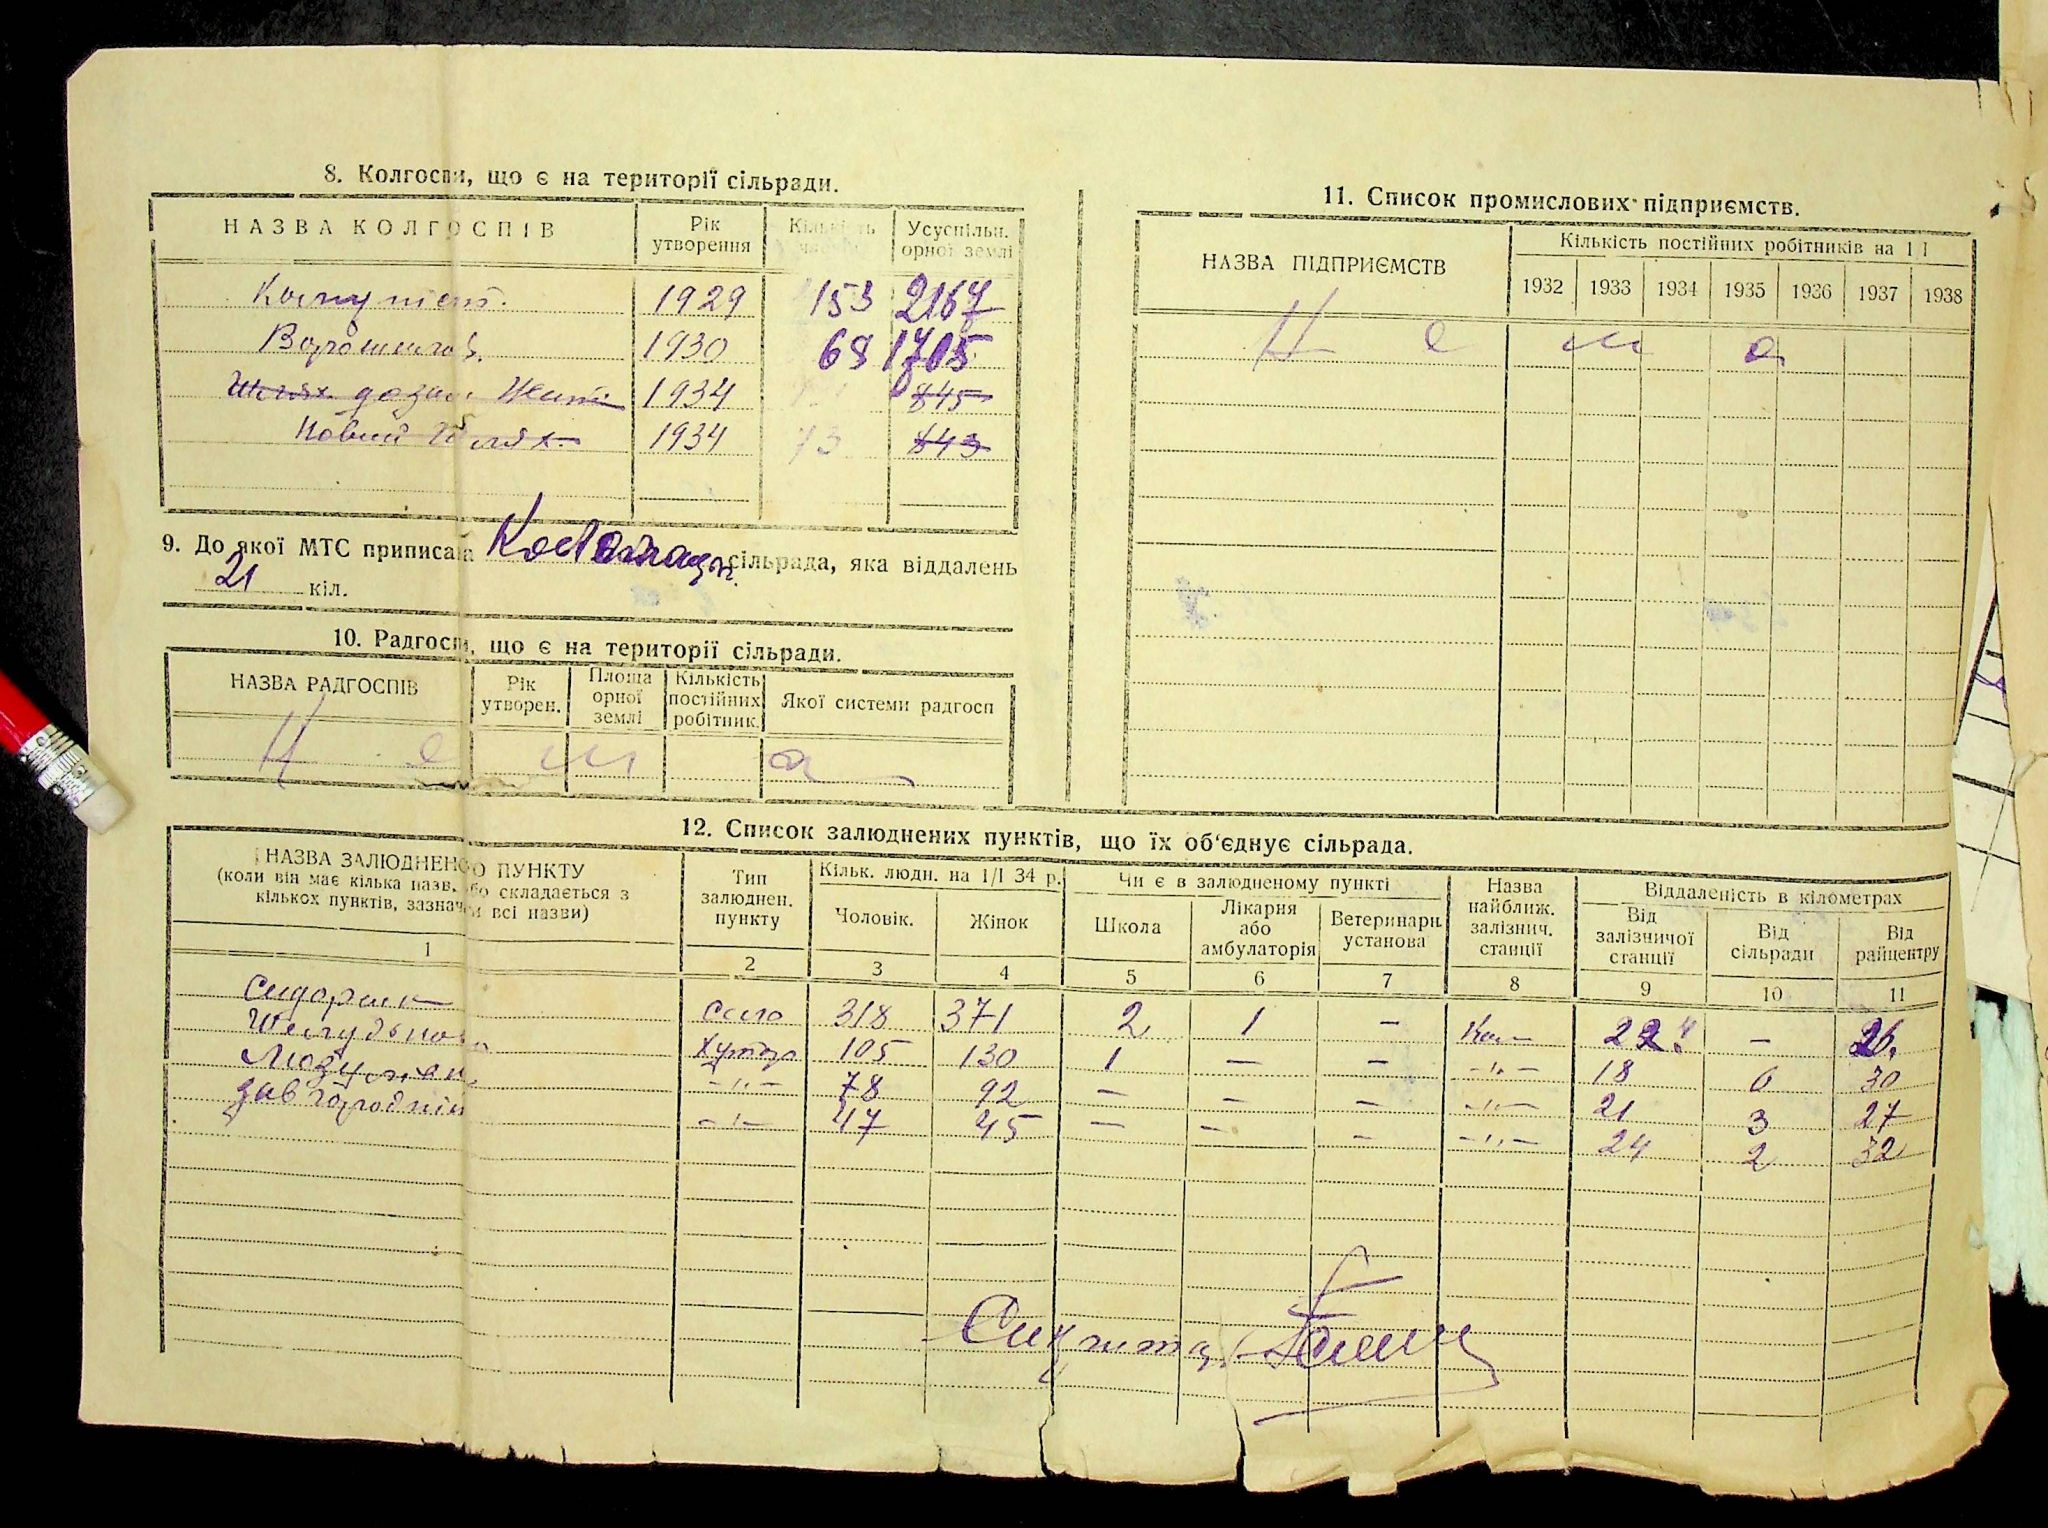 8. Колгоспи, що є на території сільради.
НАЗВА КОЛГОСПІВ | Рік утворення | Кількість | Усуспільн. орної землі
Комуніст. | 1929 | 153 | 2167
Ворошилов. | 1930 | 68 | 1705
Шлях до зам. Жит. | 1934 | 845
Новий Шлях. | 1934 | 73 | 843
9. До якої МТС приписана сільрада, яка віддалень
21 кіл.
10. Радгоспи, що є на території сільради.
НАЗВА РАДГОСПІВ | Рік утворен. | Площа орної землі | Кількість постійних робітник. | Якої системи радгосп
Н е м а
11. Список промислових підприємств.
НАЗВА ПІДПРИЄМСТВ | Кількість постійних робітників на 1 I
1932 | 1933 | 1934 | 1935 | 1936 | 1937 | 1938
Н е м а
12. Список залюднених пунктів, що їх об‘єднує сільрада.
НАЗВА ЗАЛЮДНЕНОГО ПУНКТУ (коли він має кілька назв, або складається з кількох пунктів, зазначи всі назви) | Тип залюднен. пункту | Кільк. людн. на 1/I 34 р. | Чи є в залюдненому пункті | Назва найближ. залізнич. станції | Віддаленість в кілометрах
Чоловік. | Жінок | Школа | Лікарня або амбулаторія | Ветеринарн. установа | Від залізничої станції | Від сільради | Від райцентру
1 | 2 | 3 | 4 | 5 | 6 | 7 | 8 | 9 | 10 | 11
Сидорин | село | 318 | 371 | 2 | 1 | – | Кан | 22 | – | 26.
Шелудькова | Хутор | 105 | 130 | 1 | – | – | –"– | 18 | 6 | 30
–"– | 78 | 92 | – | – | – | –"– | 21 | 3 | 27
Завгородній | –"– | 47 | 45 | – | – | – | –"– | 24 | 2 | 32